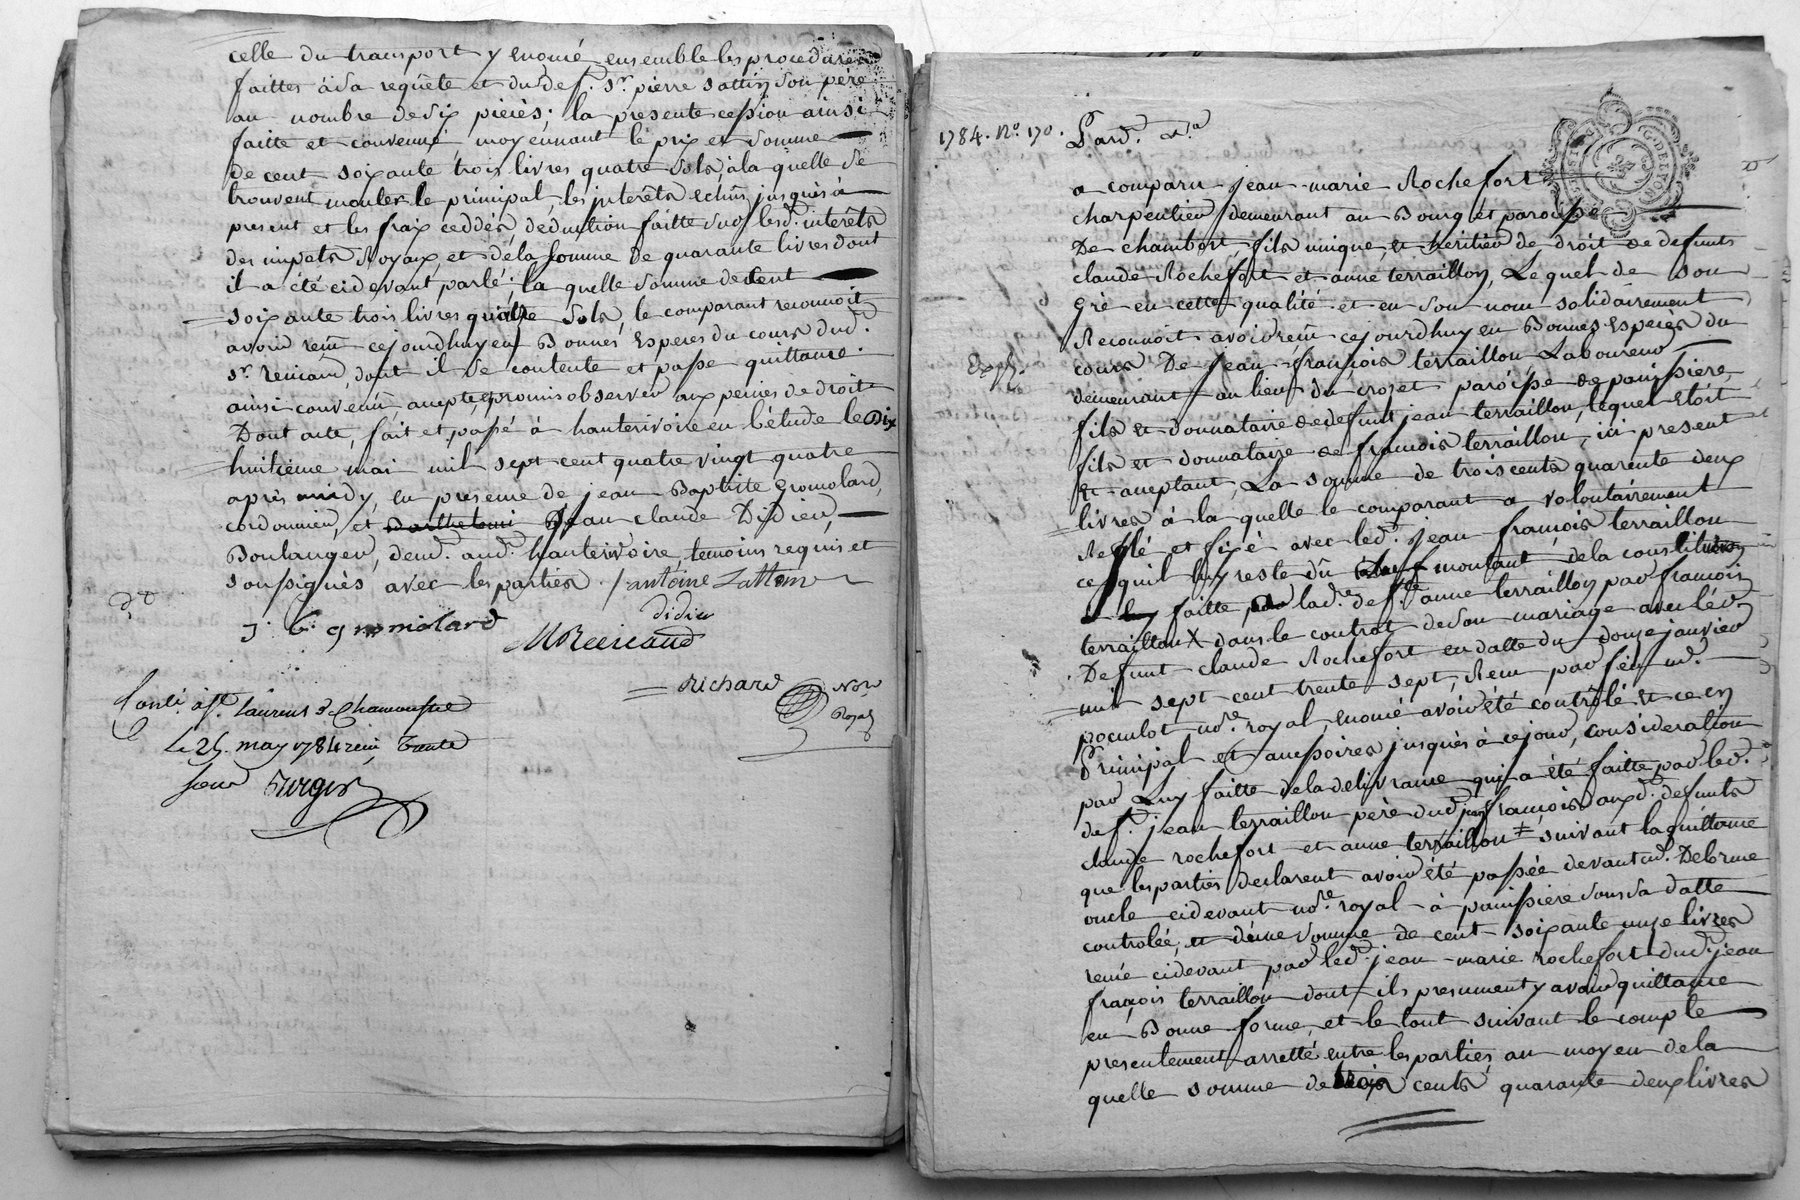 celle du transport y enoncé ensemble les procedures
faittes à sa requête et dud. def. Sr. pierre sattin son père
au nombre de six pièces; la presente cession ainsi
faitte et convenue moyennant le prix et somme
de cent soixante trois livres quatre sols, à la quelle se
trouvent monter le principal, les interêts echus jusques à
present et les fraix ceddés, deduction faitte sur lesd. interêts
des impots Royaux et de la somme de quarante livres dont
il a été cidevant parlé; la quelle somme de Cent
soixante trois livres quatre sols, le comparant reconnoit
avoir reçu cejourdhuy en Bonnes Especes du cours dud.
sr. reniand, dont il se contente et passe quittance.
ainsi convenu, accepté, promis observer aux peines de droit
Dont acte, fait et passé à hauterivoire en l'étude le Dix
huitième mai mil sept cent quatre vingt quatre
après midy, en presence de jean Baptiste gromolard,
cordonnier, et jean claude Didier,
Boulanger, demt. aud. hauterivoire temoins requis et
soussignés avec les parties. / antoine Sattin
J. B. gromolard didier
richard Nore
Royal
à St. Laurens de Chamousset
Le 25. may 1784 reçu trente
sous
1784. No. 170.
G. DE LYON
a comparu jean-marie Rochefort
charpentier demeurant au Bourg et paroisse
De chambost fils unique, et heritier de droit de defunts
claude Rochefort et anne terraillon, Lequel de son
gré en cette qualité et en son nom solidairement
Reconnoit avoir reçu cejourdhuy en Bonnes especes du
Expé.
cours De jean-françois terraillon Laboureur
demeurant au lieu du crozet paroisse de panissière,
fils et donnataire de defunt jean terraillon, lequel étoit
fils et donnataire de françois terraillon, ici present
et acceptant, La somme de trois cents quarente deux
livres à la quelle le comparant a volontairement
Reglé et fixé avec led. jean françois terraillon
ce qu'il luy reste dû montant de la constitution
faitte lad. def. anne terraillon par françois
terraillon X dans le contrat de son mariage avec led.
Defunt claude Rochefort en datte du douze janvier
mil sept cent trente sept, Reçu par feu md.
poculot nore. royal, enoncé avoir été contrôlé et ce en
Principal et accessoires jusques à cejour, consideration
par Luy faitte de la delivrance qui a été faitte par led.
def. jean terraillon père dud. jean françois auxd. defunts
claude rochefort et anne terraillon ‡ suivant la quittance
que les parties declarent avoir été passée devant md. Delorme
oncle cidevant nore. royal à panissière sous sa datte
controlée, et d'une somme de cent soixante onze livres
reçue cidevant par led. jean-marie rochefort dud. jean
françois terraillon dont ils presument y avoir quittance
en Bonne forme, et le tout suivant le compte
presentement arretté entre les parties au moyen de la
quelle somme de trois cents quarante deux livres